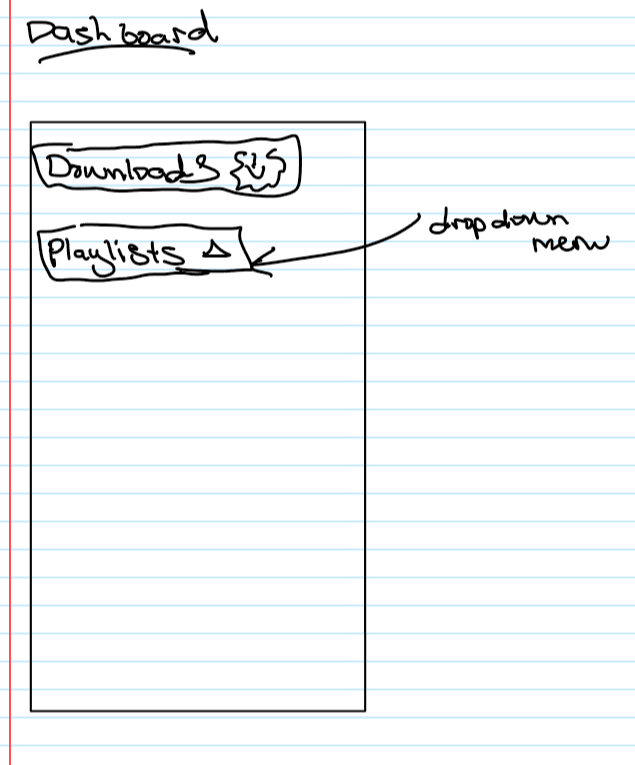 Dashboard
Downloads
Playlists
dropdown
menu